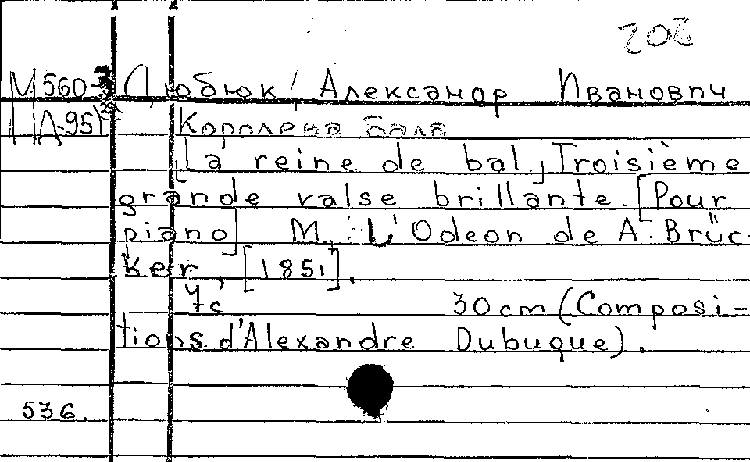 202
М 560-3 Дюбюк, Александр Иванович
Д-951 Королева бала
[La reine de bal, Troisième
grande valse brillante. [Pour
piano] M., L'Odeon de A. Brüc-
ker, [1851].
7c 30cm (Composi-
tions d'Alexandre Dubuque).
536